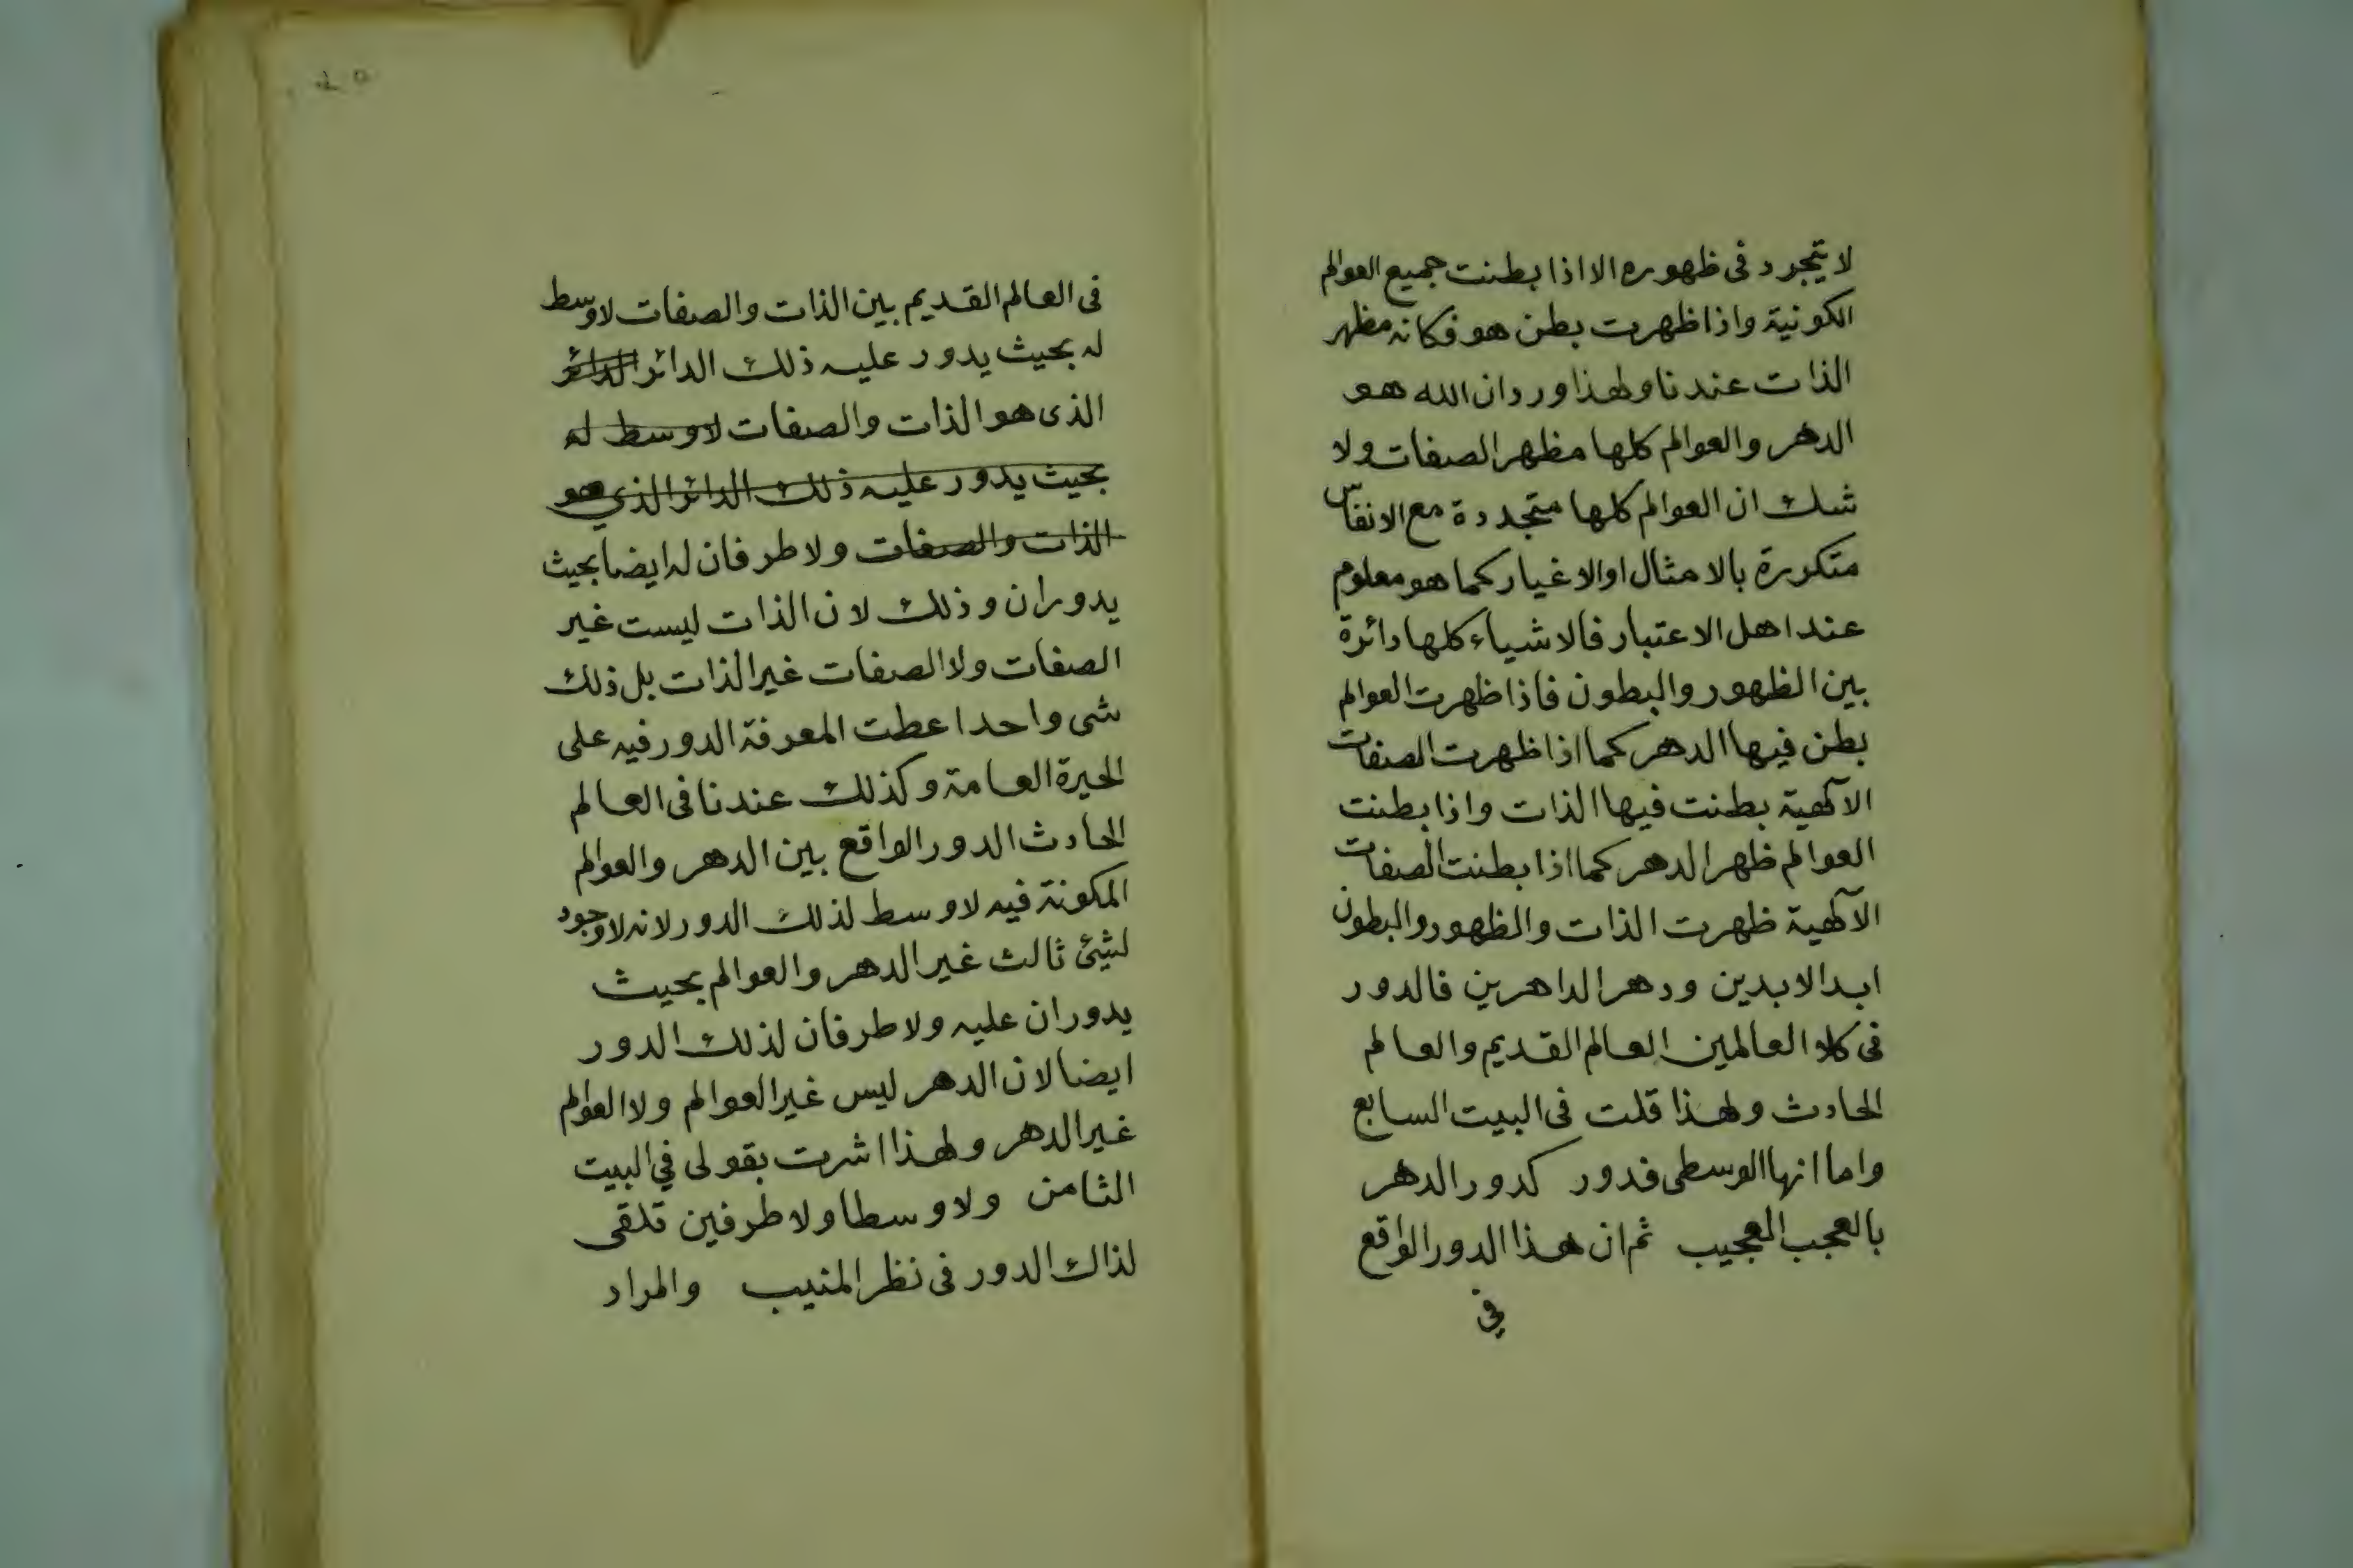 لا يتجرد فى ظهوره الا اذا بطنت جميع العوالم
الكونية واذا ظهرت بطن هو فكانه مظهر
الذات عندنا ولهذا ورد ان الله هو
الدهر والعوالم كلها مظهر الصفات ولا
شك ان العوالم كلها متجددة مع الانفاس
متكررة بالامثال او الاغيار كما هو معلوم
عند اهل الاعتبار فالاشياء كلها دائرة
بين الظهور والبطون فاذا ظهرت العوالم
بطن فيها الدهر كما اذا ظهرت الصفات
الآلهية بطنت فيها الذات واذا بطنت
العوالم ظهر الدهر كما اذا بطنت الصفات
الآلهية ظهرت الذات والظهور والبطون
ابد الابدين ودهر الداهرين فالدور
فى كلا العالمين العالم القديم والعالم
الحادث ولهذا قلت فى البيت السابع
واما انها الوسطى فدور كدور الدهر
بالعجب العجيب ثم ان هذا الدور الواقع
في
فى العالم القديم بين الذات والصفات لاوسط
له بحيث يدور عليه ذلك الدائر الدائر
الذى هو الذات والصفات لاوسط له
بحيث يدور عليه ذلك الدائر الذي هو
الذات والصفات ولا طرفان له ايضا بحيث
يدوران وذلك لان الذات ليست غير
الصفات ولا الصفات غير الذات بل ذلك
شى واحد اعطت المعرفة الدور فيه على
الحيرة العامة وكذلك عندنا فى العالم
الحادث الدور الواقع بين الدهر والعوالم
المكونة فيه لاوسط لذلك الدور لانه لاوجود
لشيئ ثالث غير الدهر والعوالم بحيث
يدوران عليه ولا طرفان لذلك الدور
ايضا لان الدهر ليس غير العوالم ولا العوالم
غير الدهر ولهذا اشرت بقولى في البيت
الثامن ولا وسطا ولا طرفين تلقى
لذاك الدور فى نظر المنيب والمراد